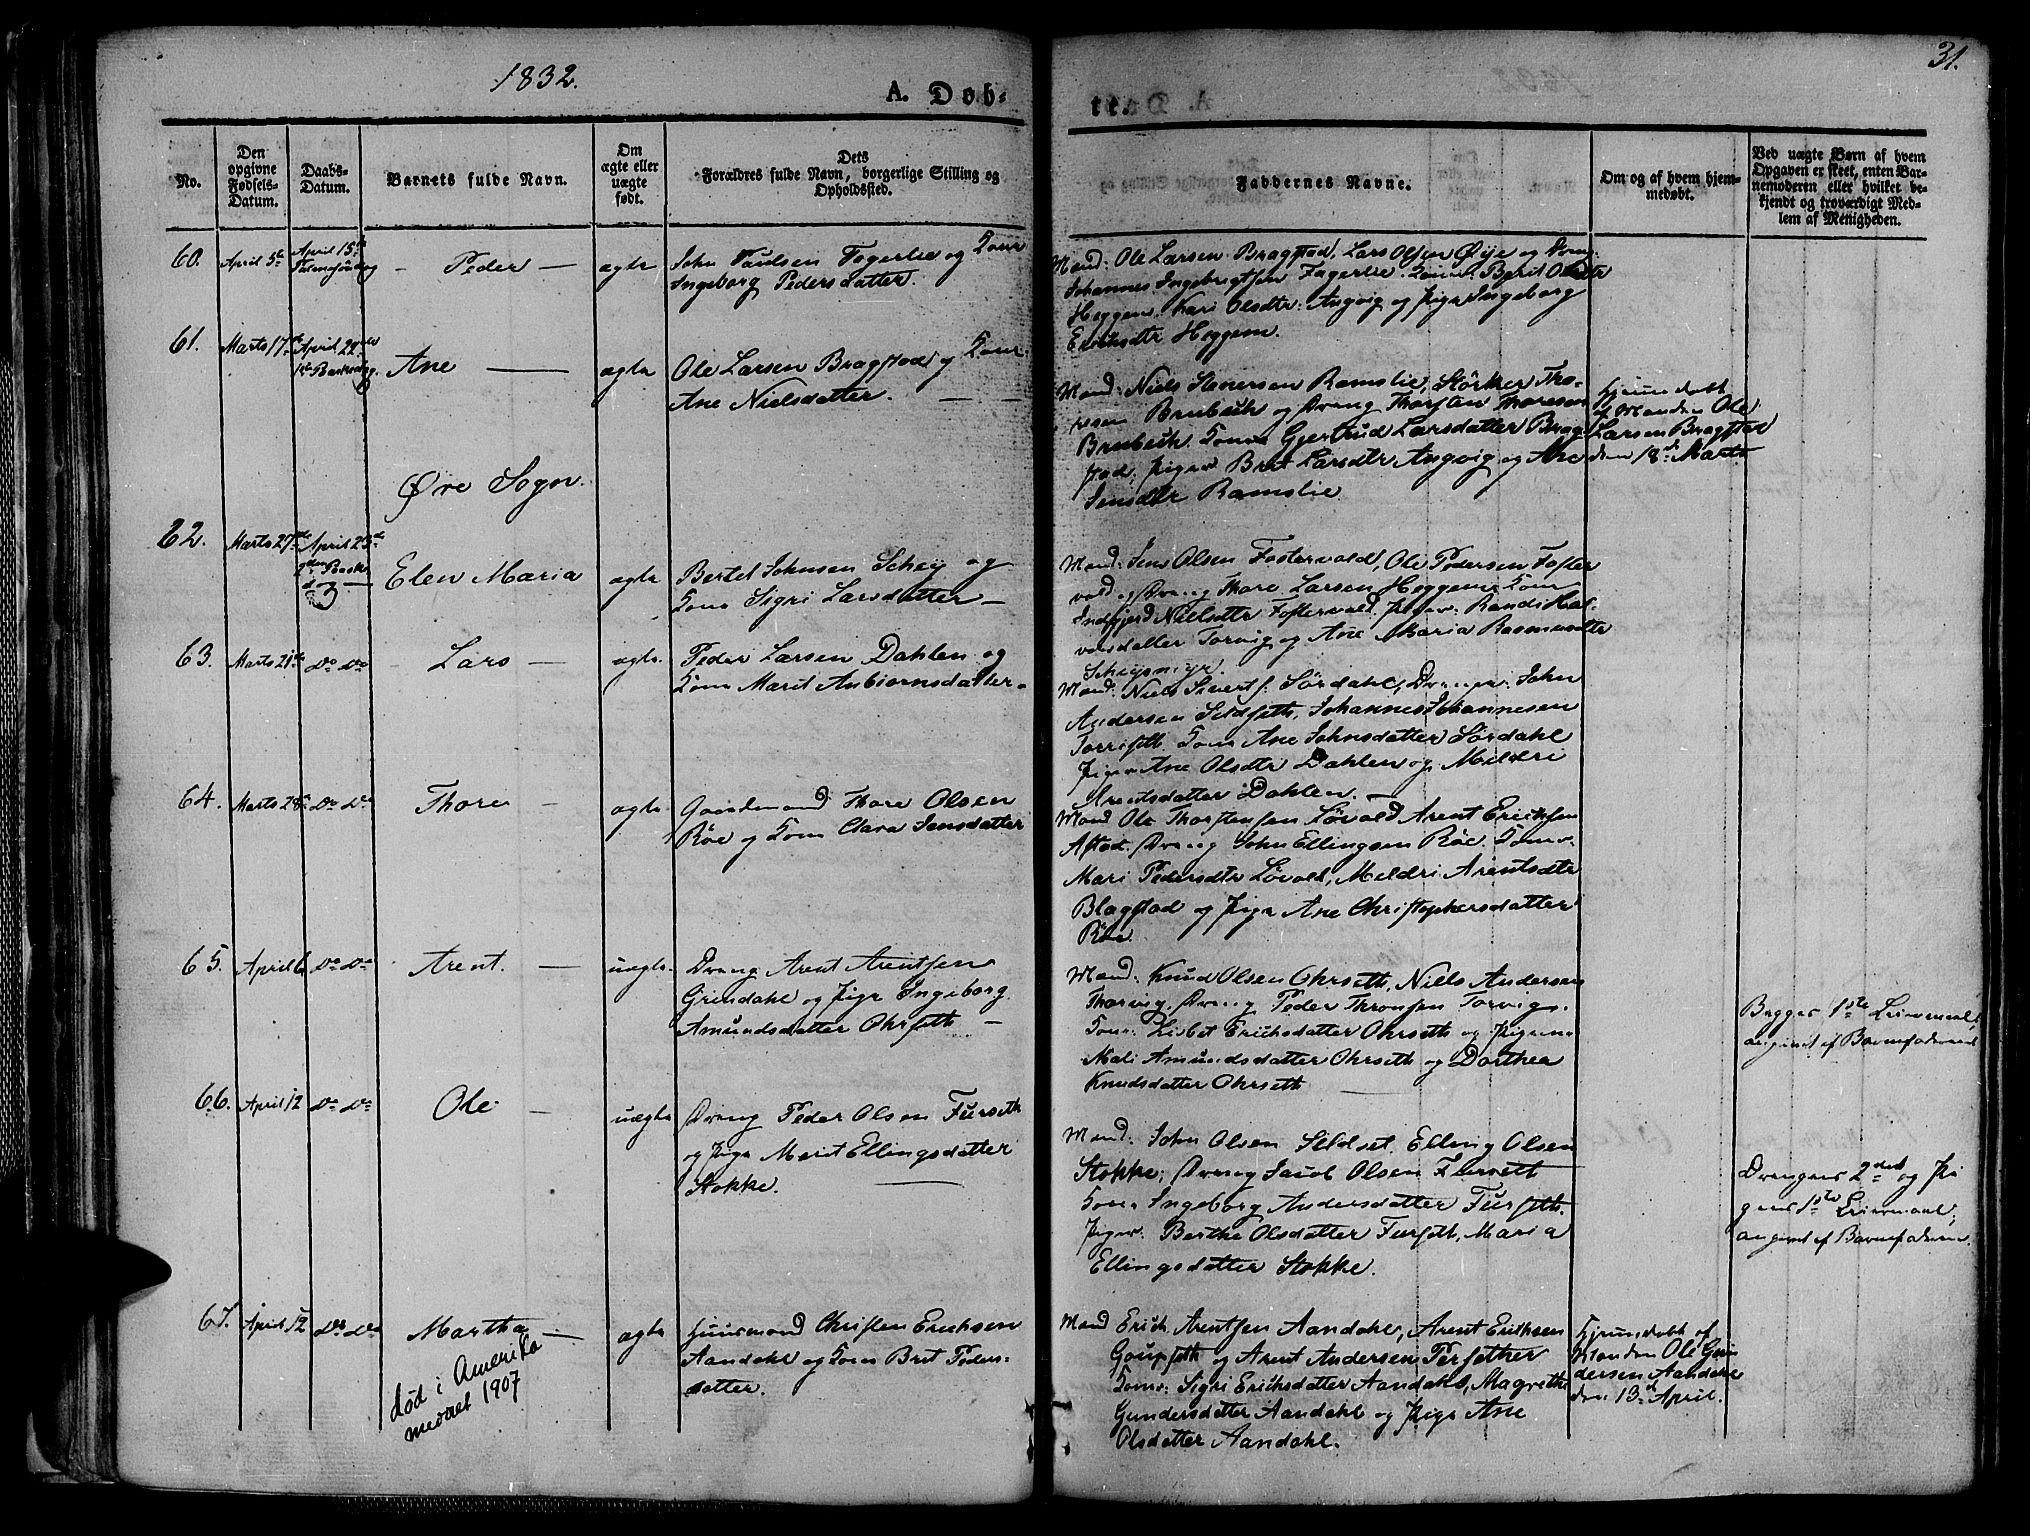 1832.
31.
A. Døb-
te.
No.
Den opgivne Fødsels-Datum.
Daabs-Datum.
Barnets fulde Navn.
Om ægte eller uægte født.
Dets Forældres fulde Navn, borgerlige Stilling og Opholdssted.
Faddernes Navne.
Om og af hvem hjem-
medøbt.
Ved uægte Børn af hvem
Opgaven er skeet, enten Bar-
nemoderen eller hvilket be-
kjendt og troværdigt Med-
lem af Menigheden.
60.
April 5te
April 15de
Palmesøndag
Peder
ægte
John Paulsen Fagerlie og Kone
Ingeborg Pedersdatter.
Mænd: Ole Larsen Bragstad, Lars Olsen Øije og Dreng
Johannes Ingebrigtsen Fagerlie. Koner: Berit Olsdtr
Heggem. Kari Olsdtr: Angvig og Pige Ingeborg
Ericksdtr Heggem.
61.
Marts 17de
April 22de
1ste Paaskedag.
Ane
ægte
Ole Larsen Bragstad og Kone
Ane Nielsdatter.
Mænd: Niels Stenersen Ramslie, Størker Tho-
resen Brubech og Dreng Thorsten Thoresen
Brubech. Kone Gjertrud Larsdatter Brag-
stad, Piger Brit Larsdtr Angvig og Ane
Jensdtr Ramslie
Hjemmedøbt
af Manden Ole
Larsen Bragstad
den 18de Marts
Øre Sogn.
62.
Marts 27de
April 23de
2den Paaske
dag
Elen Maria
ægte
Bertel Johnsen Schey og
Kone Sigri Larsdatter
Mænd: Jens Olsen Fostervold, Ole Pedersen Foster
vold og Dreng Thore Larsen Heggem. Kone
Indfgjerd Nielsdtr Fostervold. Piger: Randi Hal-
vorsdatter Torvig og Ane Maria Rasmusdtr
Scheysmyr.
63.
Marts 21de
Do Do
Lars
ægte.
Peder Larsen Dahlen og
Kone Marit Anbiørnsdatter.
Mænd: Niels Siverts: Sørdahl, Drenge: John
Andersen Sildseth, Johannes Johannesen
Torriseth. Kone Ane Johnsdatter Sørdahl
Piger Ane Olsdtr Dahlen og Meldri
Arentsdatter Dahlen.
64.
Marts 28de
Do Do
Thore
ægte
Gaardmand Thore Olsen
Røe og Kone Clara Jensdatter
Mænd Ole Thorstensen Løvold Arent Ericksen
Astad. Dreng John Ellingsen Røe. Koner
Mari Pedersdtr Løvold, Meldri Arentsdtr
Blagstad og Pige Ane Christophersdatter
Røe.
65.
April 6
Do Do
Arent.
uægte.
Dreng Arent Arentsen
Grindahl og Pige Ingeborg
Amundsdatter Ohrseth
Mænd: Knud Olsen Ohrseth, Niels Andersen
Thorvig, Dreng Peder Thronsen Torvig.
Kone: Lisbet Ericksdatter Ohrseth og Pigerne
Mali Amundsdatter Ohrseth og Dorthea
Knudsdatter Ohrseth
Begges 1ste Leiermaal,
angivet af Barnefaderen
66.
April 12
Do Do
Ole
uægte
Dreng Peder Olsen Furseth
og Pige Marit Ellingsdatter
Stokke.
Mænd: John Olsen Sildset, Elling Olsen
Stokke, Dreng Jacob Olsen Furseth
Kone Ingeborg Andersdatter Furseth.
Piger: Berthe Olsdatter Furseth, Maria
Ellingsdatter Stokke.
Drengens 2det og Pi
gens 1ste Leiermaal,
angivet af Barnefaderen.
67.
April 12
Do Do
Martha
død i Amerika
medaet 1907
ægte
Huusmand Christen Ericksen
Aandahl og Kone Brit Peders-
datter.
Mænd Erich Arentsen Aandahl, Arent Ericksen
Goupseth og Arent Andersen Persether
Koner: Sigri Ericksdatter Aandahl, Magrethe
Gundersdatter Aandahl og Pige Ane
Olsdatter Aandahl.
Hjemmedøbt af
Manden Ole Gun
dersen Aandahl
den 13de April.